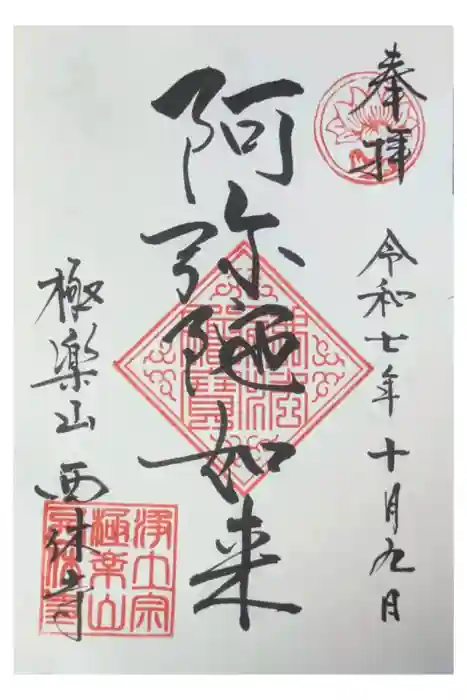 奉拝
令和七年十月九日
阿弥陀如来
佛法
僧寶
極楽山
西
寺
浄土宗
極楽山